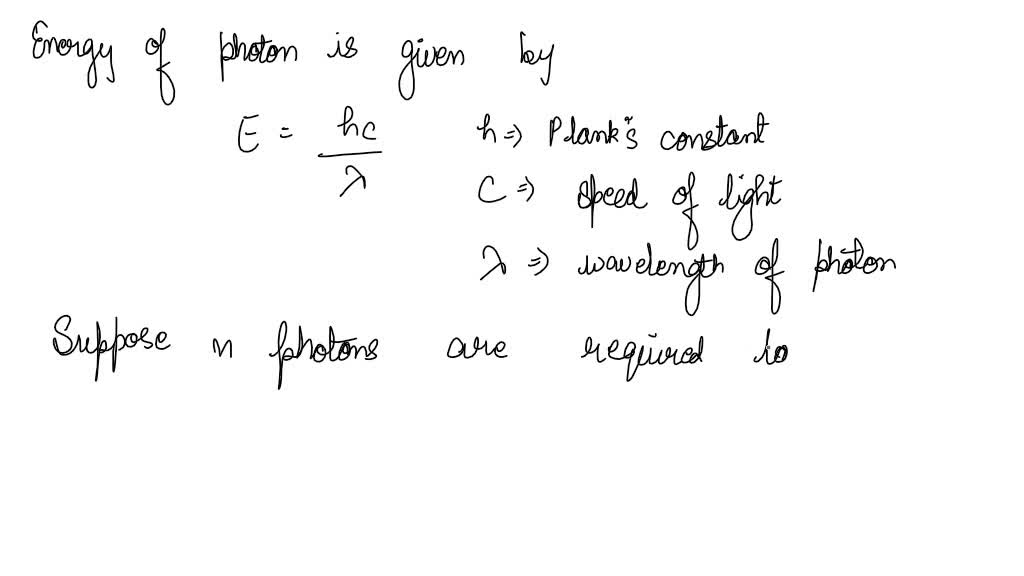 Energy of photon is given by
E = hc/λ
h ⇒ Plank's constant
C ⇒ speed of light
λ ⇒ wavelength of photon
Suppose n photons are required to